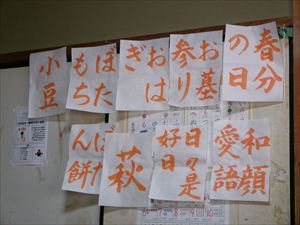 春分
の日
お墓
参り
おは
ぎ
ぼた
もち
小豆
和顔
愛語
日々是
好日
萩
ぼた
ん餅